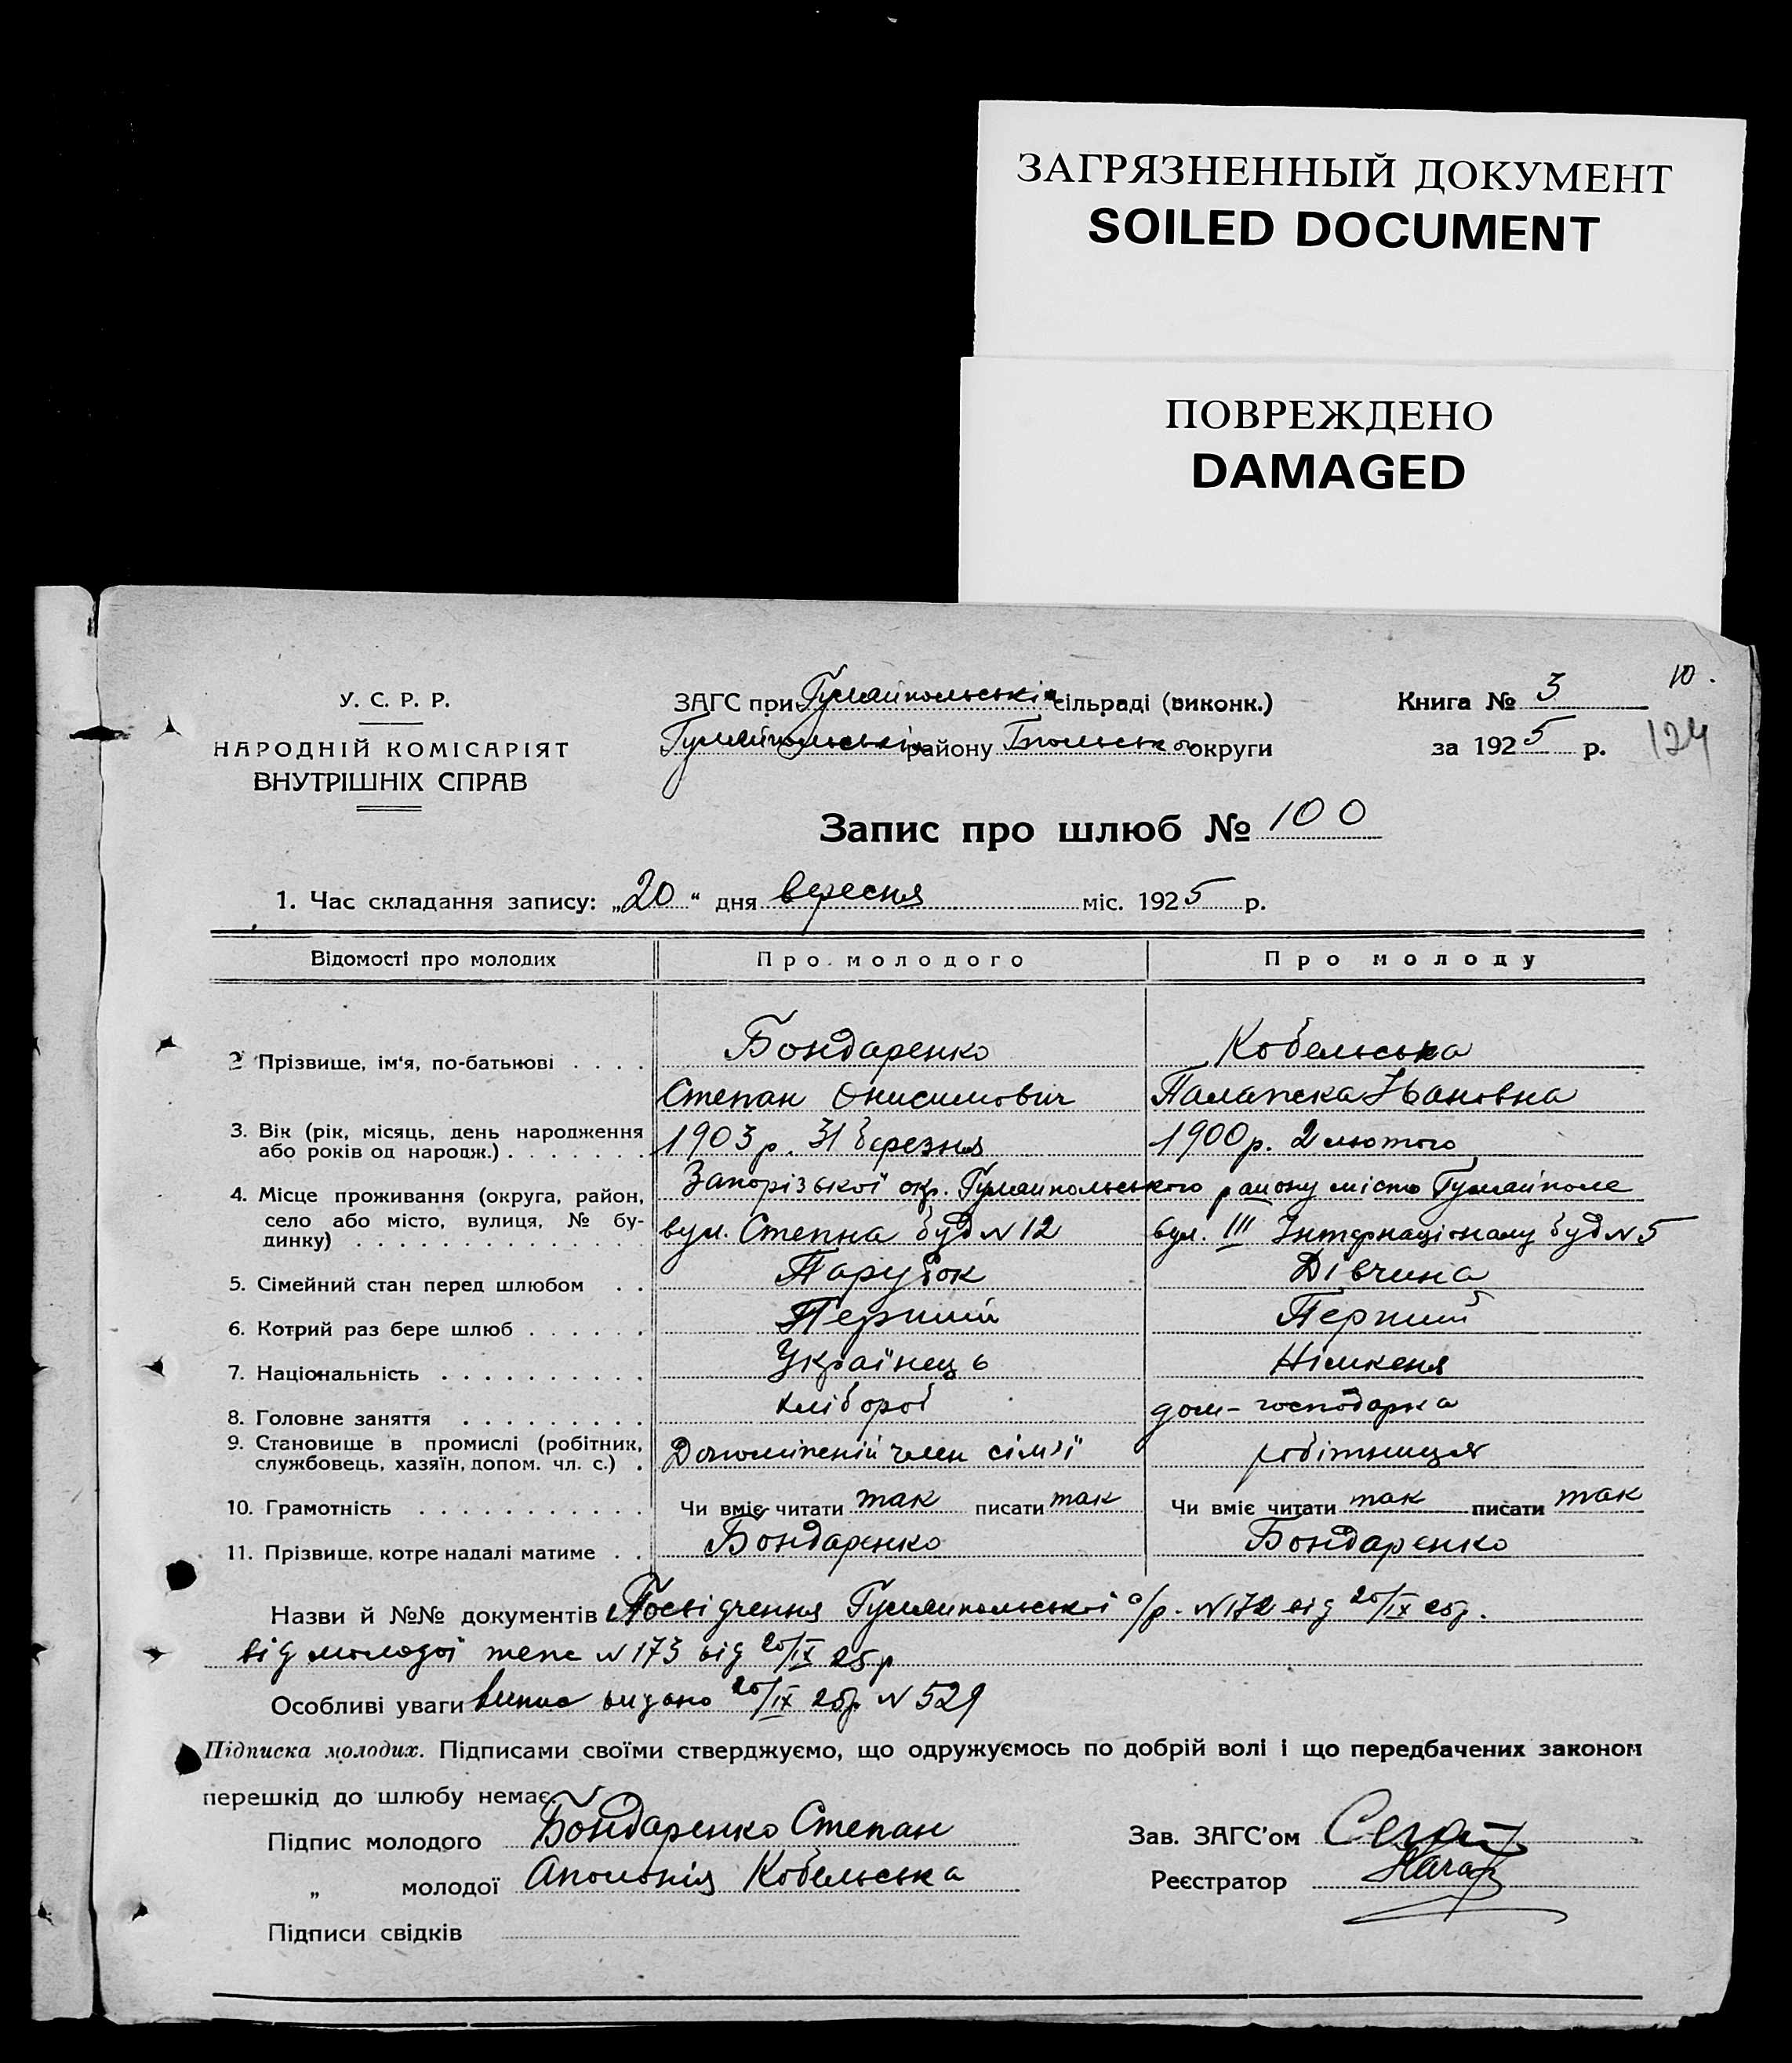 ЗАГРЯЗНЕННЫЙ ДОКУМЕНТ
SOILED DOCUMENT
ПОВРЕЖДЕНО
DAMAGED
10.
124
У. С. Р. Р.
НАРОДНІЙ КОМІСАРІЯТ
ВНУТРІШНІХ СПРАВ
ЗАГС при Гуляйпольськія сільраді (виконк.)
Гуляйпольськія району округи
Книга № 3
за 1925 р.
Запис про шлюб № 100
1. Час складання запису: „20" дня вересня міс. 1925 р.
Відомості про молодих Про молодого Про молоду
2 Прізвище, ім'я, по-батькові . . . . Бондаренко Кобельська
Степан Онисимович Палажка Івановна
3. Вік (рік, місяць, день народження або років од народж.) . . . . . . . 1903 р. 31 березня 1900 р. 2 лютого
4. Місце проживання (округа, район, село або місто, вулиця, № будинку) . . . . . . . . . . . . . Запорізької окр. Гуляйпольського району місто Гуляйполе
вул. Степна буд N 12 вул. III Інтернаціоналу буд N 5
5. Сімейний стан перед шлюбом . . Парубок Дівчина
6. Котрий раз бере шлюб . . . . . . Перший Перший
7. Національність . . . . . . . . . . Українець Німкеня
8. Головне заняття . . . . . . . . . хлібороб дом-господарка
9. Становище в промислі (робітник, службовець, хазяїн, допом. чл. с.) . член сім'ї робітниця
10. Грамотність . . . . . . . . . . . Чи вміє читати так писати так Чи вміє читати так писати так
11. Прізвище, котре надалі матиме . . Бондаренко Бондаренко
Назви й №№ документів Посвідчення Гуляйпольської с/р. N 172 від 20/IX 25р.
від молодої теж N 173 від 20/IX 25 р
Особливі уваги випис видано 20/IX 25р N 529
Підписка молодих. Підписами своїми стверджуємо, що одружуємось по добрій волі і що передбачених законом
перешкід до шлюбу немає.
Підпис молодого Бондаренко Степан
Зав. ЗАГС'ом
„ молодої Аполонія Кобельська
Реєстратор
Підписи свідків